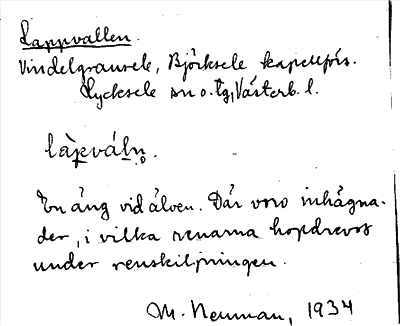 Lappvallen.
Vindelgransele, Björksele kapellförs.
Lycksele sn o. tg, Västerb. l.
làpváln̥.
En äng vid älven. Där voro inhägna-
der, i vilka renarna hopdrevos
under renskiljningen.
M. Neuman, 1934